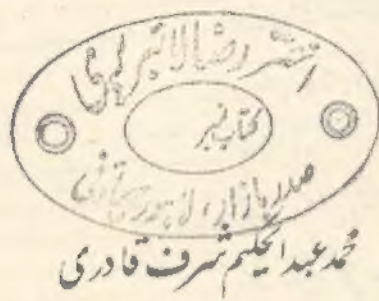 اختر رضا لائبریری
کتاب نمبر
صدر بازار، لاہور چھاؤنی
محمد عبد الحکیم شرف قادری